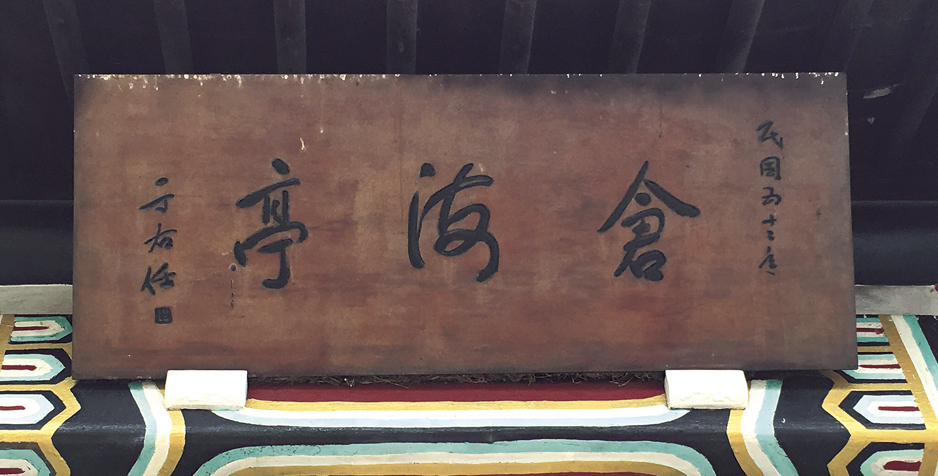 民國五十二年
倉海亭
于右任